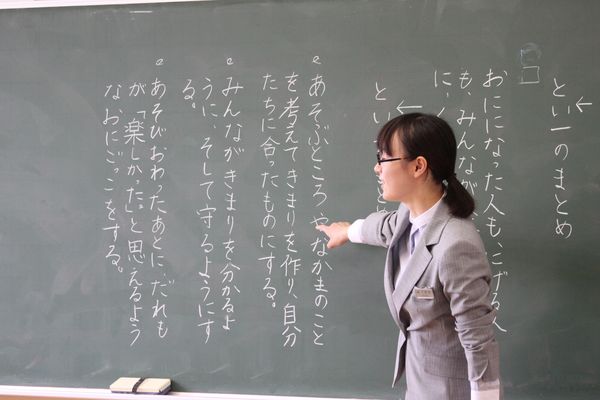 とい一のまとめ
おにになった人も、にげる人
も、みんなが
に、
とい
あそぶところやなかまのこと
を考えてきまりを作り、自分
たちに合ったものにする。
みんながきまりを分かるよ
うに、そして守るようにす
る。
あそびおわったあとに、だれも
が「楽しかった」と思えるよう
なおにごっこをする。